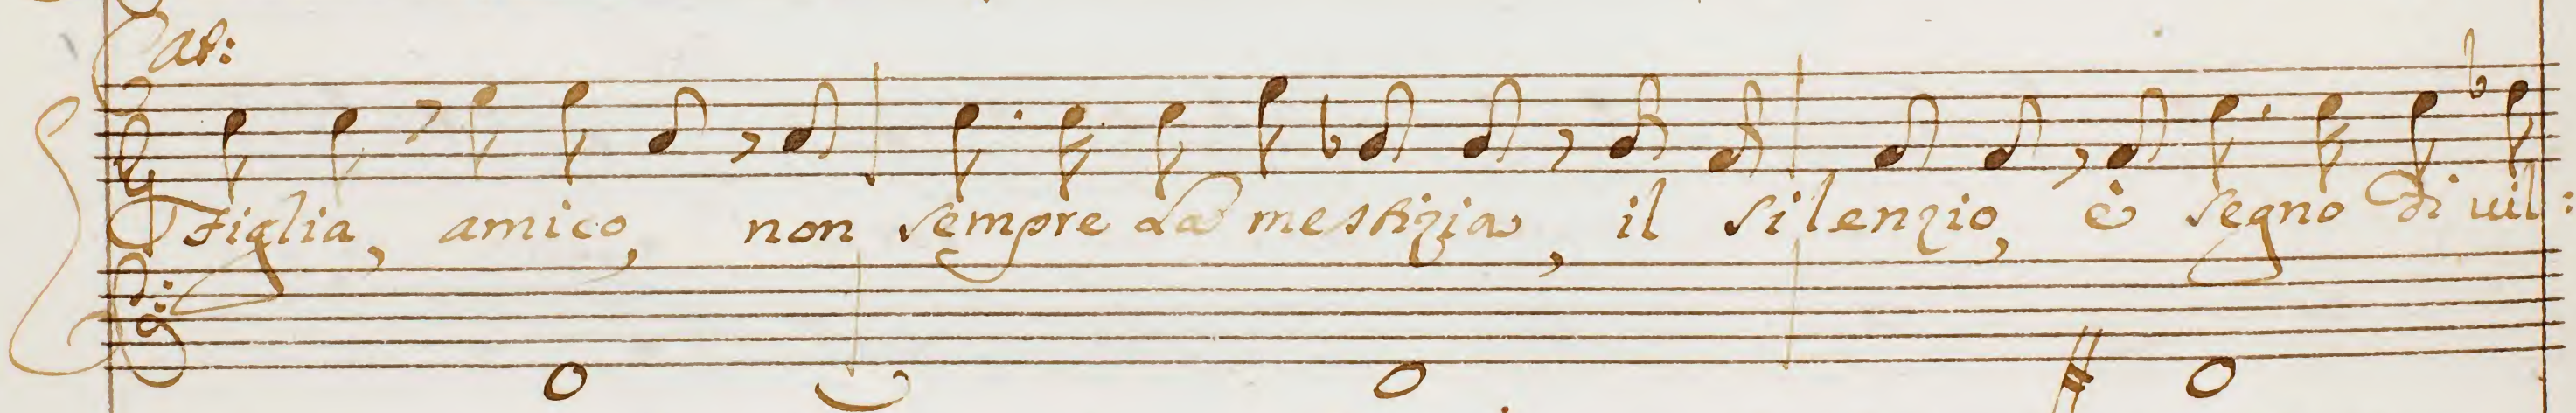 Cat:
Figlia, amico, non sempre la mestizia, il silenzio, è segno di vil: